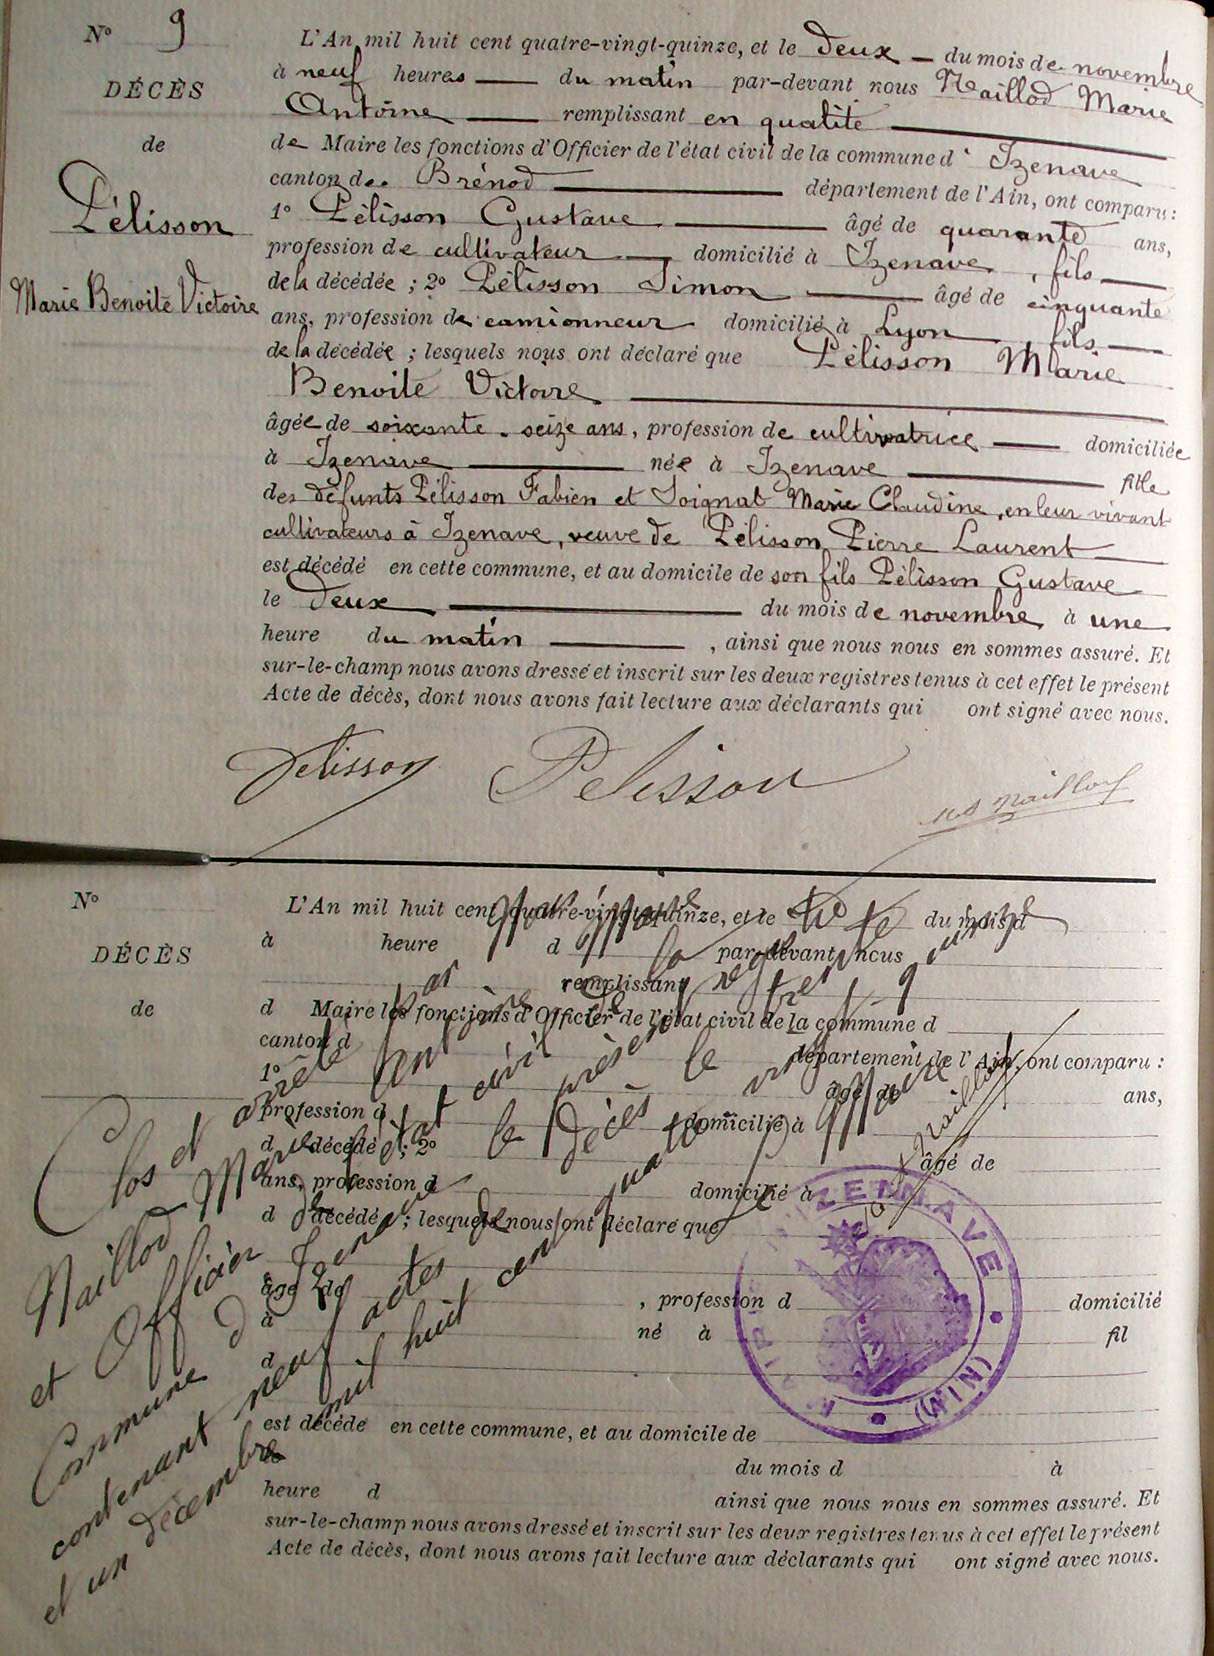 N° 9
DÉCÈS
de
Pélisson
Marie Benoite Victoire
L'An mil huit cent quatre-vingt-quinze, et le deux du mois de novembre
à neuf heures du matin par-devant nous Naillod Marie
Antoine remplissant en qualité
de Maire les fonctions d'Officier de l'état civil de la commune d' Izenave
canton de Brénod département de l'Ain, ont comparu :
1° Pélisson Gustave âgé de quarante ans,
profession de cultivateur domicilié à Izenave, fils
de la décédée ; 2° Pélisson Simon âgé de cinquante
ans, profession de camionneur domicilié à Lyon fils
de la décédée ; lesquels nous ont déclaré que Pélisson Marie
Benoite Victoire
âgée de soixante-seize ans, profession de cultivatrice domiciliée
à Izenave née à Izenave fille
des défunts Pélisson Fabien et Soignat Marie Claudine, en leur vivant
cultivateurs à Izenave, veuve de Pélisson Pierre Laurent
est décédé en cette commune, et au domicile de son fils Pélisson Gustave
le deux du mois de novembre à une
heure du matin , ainsi que nous nous en sommes assuré. Et
sur-le-champ nous avons dressé et inscrit sur les deux registres tenus à cet effet le présent
Acte de décès, dont nous avons fait lecture aux déclarants qui ont signé avec nous.
Pelisson Pelisson Naillod
N°
DÉCÈS
de
L'An mil huit cent quatre-vingt-quinze, et le du mois d
à heure d par-devant nous
remplissant
d Maire les fonctions d'Officier de l'état civil de la commune d
canton d département de l'Ain, ont comparu :
1° âgé de ans,
profession d domicilié à
d décédé ; 2° âgé de
ans, profession d domicilié à
d décédé ; lesquels nous ont déclaré que
âgé de , profession d domicilié
à né à fil
d
est décédé en cette commune, et au domicile de
le du mois d à
heure d ainsi que nous nous en sommes assuré. Et
sur-le-champ nous avons dressé et inscrit sur les deux registres tenus à cet effet le présent
Acte de décès, dont nous avons fait lecture aux déclarants qui ont signé avec nous.
Clos et arrêté par
Naillod Marie Antoine
et Officier de l'état civil de la
Commune d'Izenave le présent registre
contenant neuf actes de Décès le trente
et un décembre mil huit cent quatre vingt-quinze
Le Maire
Naillod
IZENAVE
(AIN)